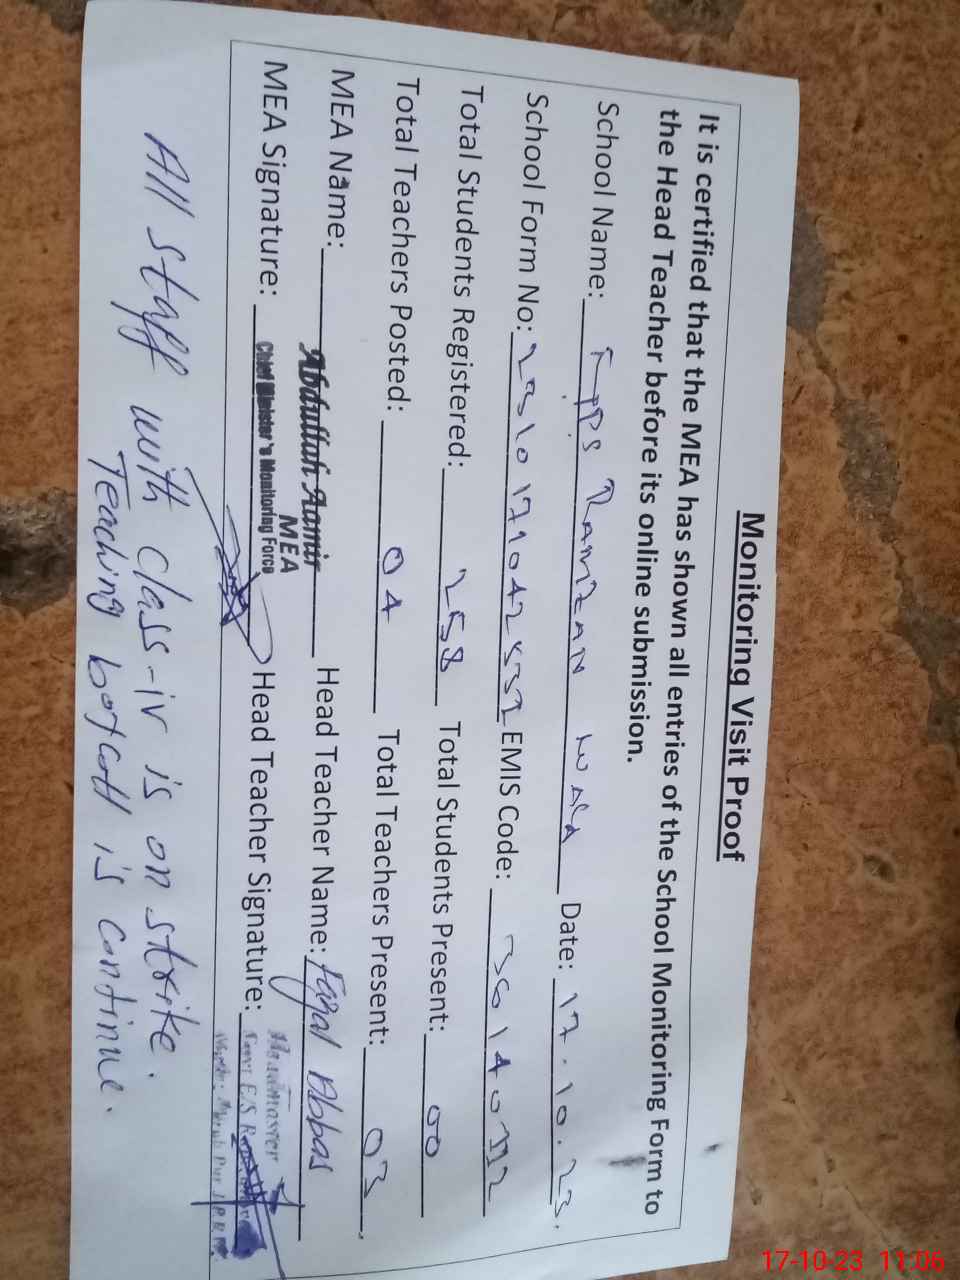 Monitoring Visit Proof
It is certified that the MEA has shown all entries of the School Monitoring Form to
the Head Teacher before its online submission.
School Name: RAMZAN WALA Date: 17.10.23.
School Form No: EMIS Code:
Total Students Registered: 258 Total Students Present: 00
Total Teachers Posted: 04 Total Teachers Present: 03
MEA Name: Abdullah Aamir Head Teacher Name: Abbas
MEA
Chief Minister's Monitoring Force
MEA Signature: Head Teacher Signature:
HeadMaster
Govt E/S
All staff with class-iv is on strike.
Teaching botcott is continue.
17-10-23 11:06